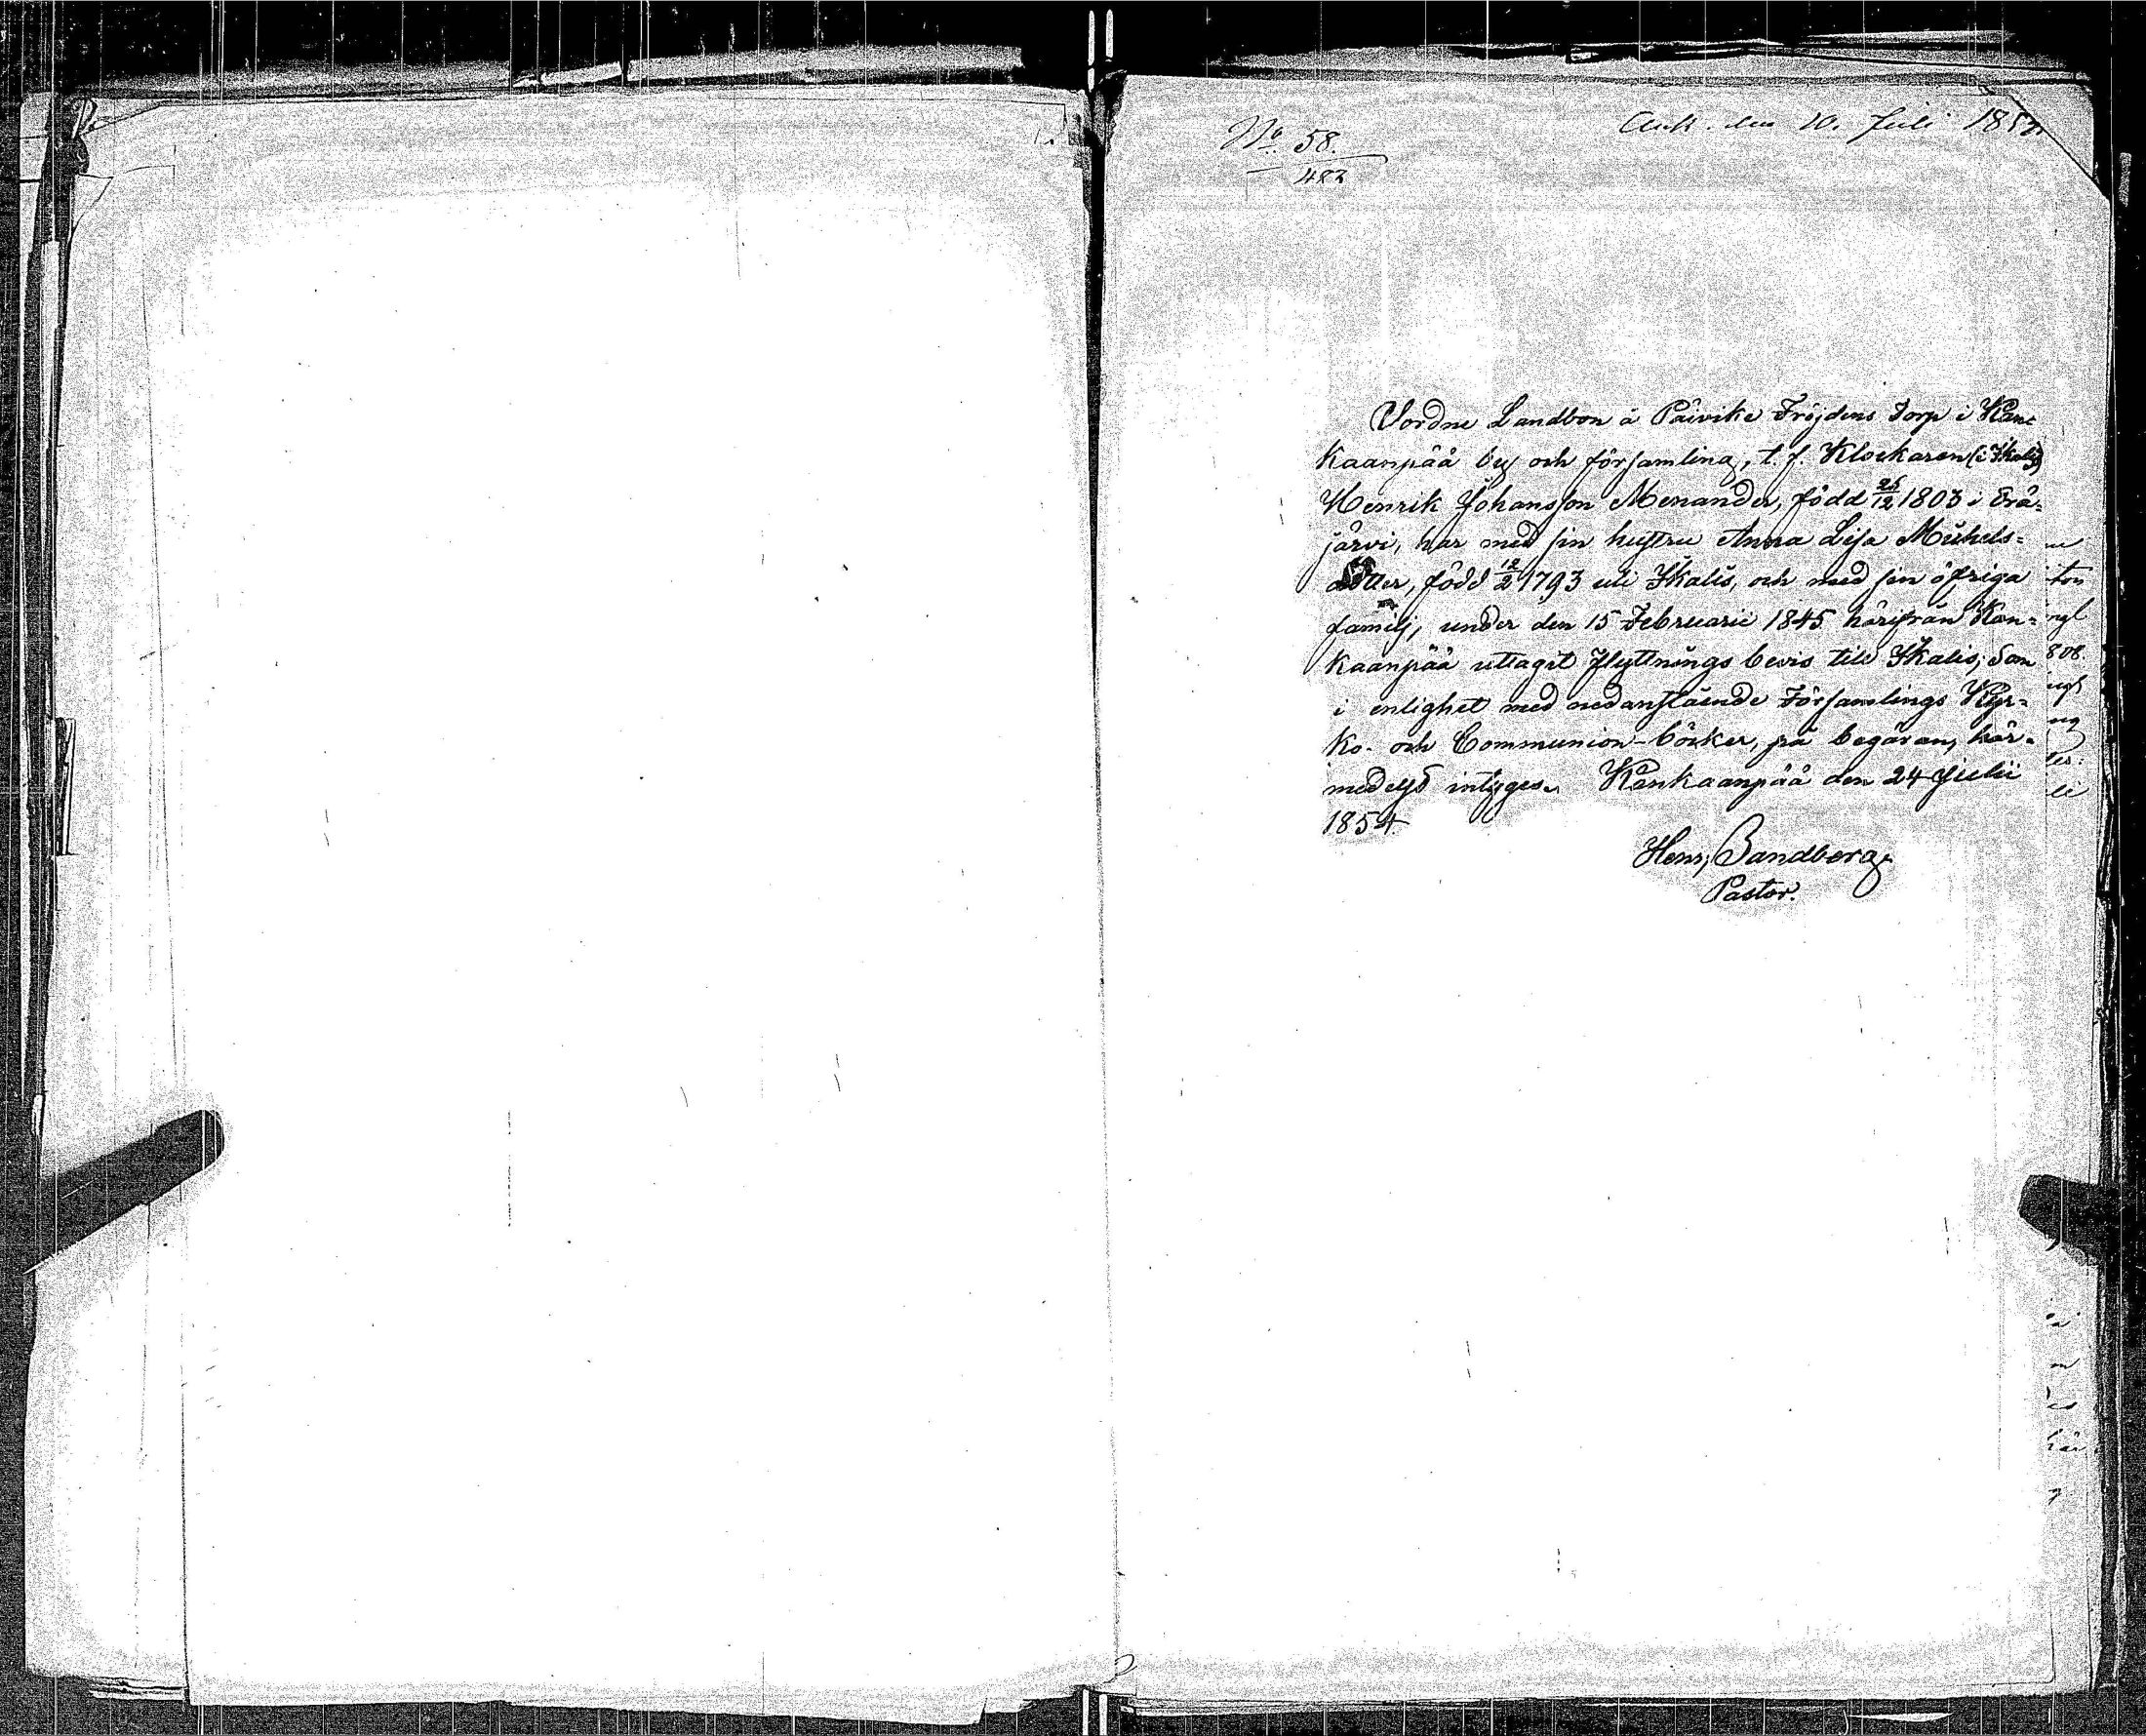 No 58.
482
Ank. den 10. Juli 185
Vordne Landbon å Päivike Fröjdens Torp i Kan-
kaanpää by och församling, t. f. Klockaren (i Ikalis)
Henrik Johansson Menander, född 25/12 1803 i Erä-
järvi, har med sin hustru Anna Lisa Michels-
dotter, född 12/2 1793 uti Ikalis, och med sin öfriga
familj, under den 15 Februarii 1845 härifrån Kan-
kaanpää uttagit flyttnings bevis till Ikalis; Som
i enlighet med nedanstående Församlings Kyr-
ko- och Communion-böcker, på begäran, här-
medelst intygas. Kankaanpää den 24 Julii
1854.
Henr, Sandberg.
Pastor.